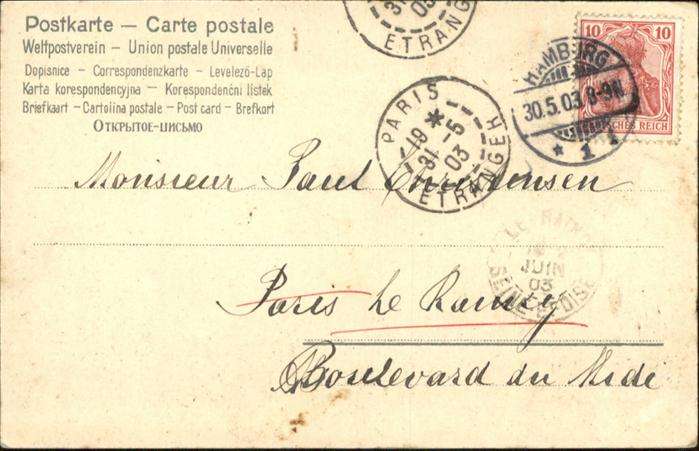 Postkarte – Carte postale
Weltpostverein – Union postale Universelle
Dopisnice – Correspondenzkarte – Levelező-Lap
Karta korespondencyjna – Korespondenční lístek
Briefkaart – Cartolina postale – Post card – Brefkort
Открытое-письмо
3 03
ETRANG
PARIS
19 *
31 -5
03
ETRANGER
HAMBURG
30.5.03 8-9N.
* 1 1
10 10
SCHES REICH
Monsieur Paul Christensen
LE RAINCY
JUIN
03
SEINE-ET-OISE
Paris Le Raincy
Boulevard du Midi